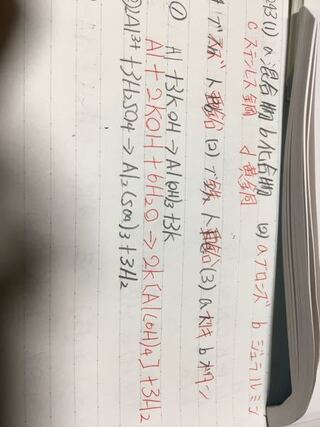 243 (1) a 混合物 b 化合物 (2) a ブロンズ b ジュラルミン
c ステンレス全岡 d 黄全同
ト 亜鉛 (2) ト 亜鉛 (3) a b
①
Al+3KOH→Al(OH)3+3K
Al+2KOH+6H2O→2K[Al(OH)4]+3H2
②2Al3++3H2SO4→Al2(SO4)3+3H2